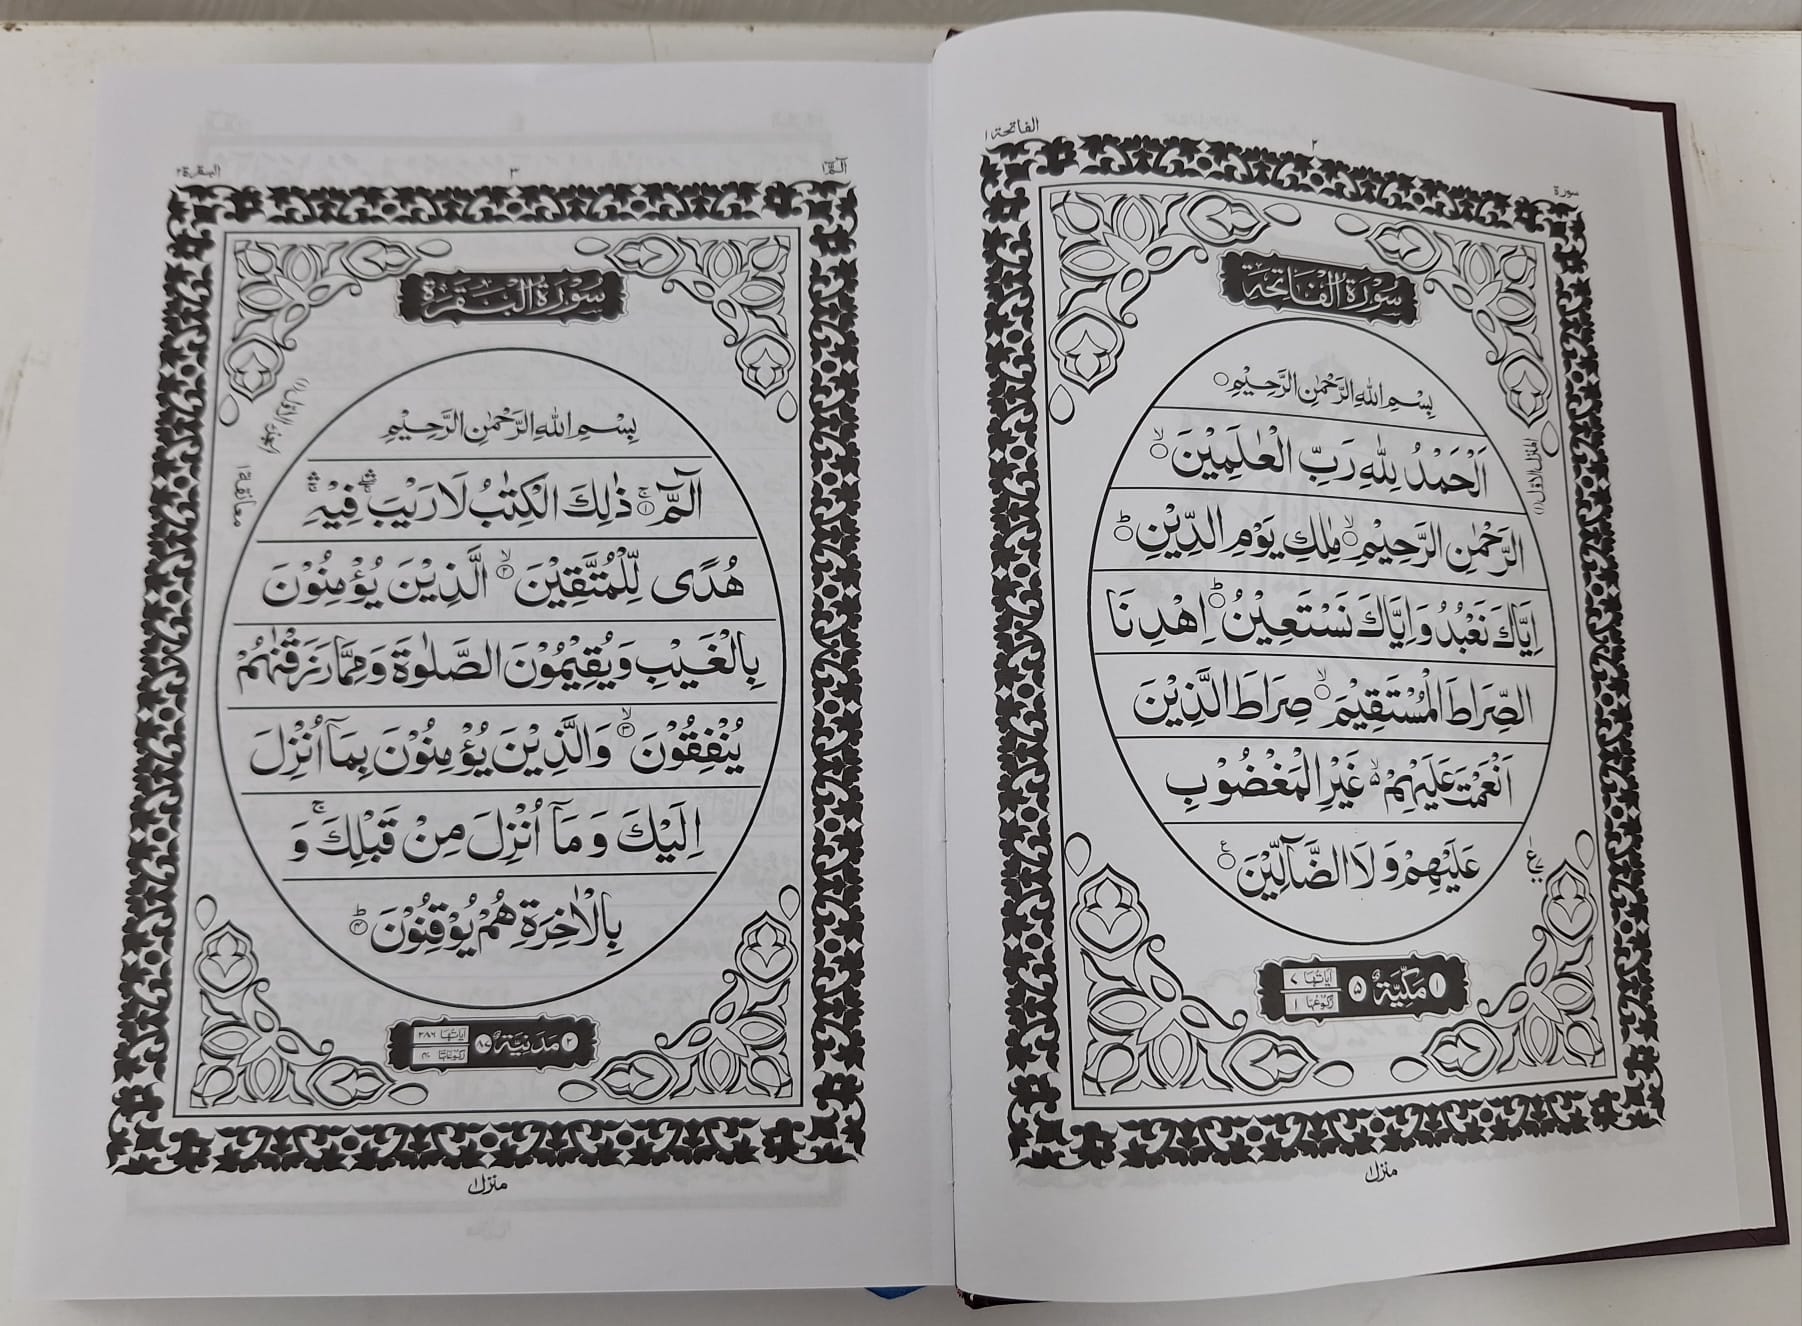 سورة
٢
الفاتحة ١
سُوْرَةُ الْفَاتِحَةِ
بِسْمِ اللهِ الرَّحْمٰنِ الرَّحِيْمِ
اَلْحَمْدُ لِلّٰهِ رَبِّ الْعٰلَمِيْنَ ۙ
الرَّحْمٰنِ الرَّحِيْمِ ۙ مٰلِكِ يَوْمِ الدِّيْنِ ؕ
اِيَّاكَ نَعْبُدُ وَ اِيَّاكَ نَسْتَعِيْنُ ؕ اِهْدِنَا
الصِّرَاطَ الْمُسْتَقِيْمَ ۙ صِرَاطَ الَّذِيْنَ
اَنْعَمْتَ عَلَيْهِمْ ۙ۬ غَيْرِ الْمَغْضُوْبِ
عَلَيْهِمْ وَلَا الضَّآلِّيْنَ ع
المنزل الاوّل (١)
١ مَكِّيَّةٌ ٥
اٰيَاتُهَا ٧
رُكُوْعُهَا ١
منزل ١
الٓمّٓ ١
٣
البقرة ٢
سُوْرَةُ الْبَقَرَةِ
بِسْمِ اللهِ الرَّحْمٰنِ الرَّحِيْمِ
الٓمّٓ ۚ ١ ذٰلِكَ الْكِتٰبُ لَا رَيْبَ ۛ فِيْهِ ۛ
هُدًى لِّلْمُتَّقِيْنَ ۙ ٢ الَّذِيْنَ يُؤْمِنُوْنَ
بِالْغَيْبِ وَيُقِيْمُوْنَ الصَّلٰوةَ وَمِمَّا رَزَقْنٰهُمْ
يُنْفِقُوْنَ ۙ ٣ وَالَّذِيْنَ يُؤْمِنُوْنَ بِمَآ اُنْزِلَ
اِلَيْكَ وَمَآ اُنْزِلَ مِنْ قَبْلِكَ ۚ وَ
بِالْاٰخِرَةِ هُمْ يُوْقِنُوْنَ ؕ ٤
الجزء الاوّل (١)
معانقة ١
٢ مَدَنِيَّةٌ ٨٧
اٰيَاتُهَا ٢٨٦
رُكُوْعَاتُهَا ٤٠
منزل ١